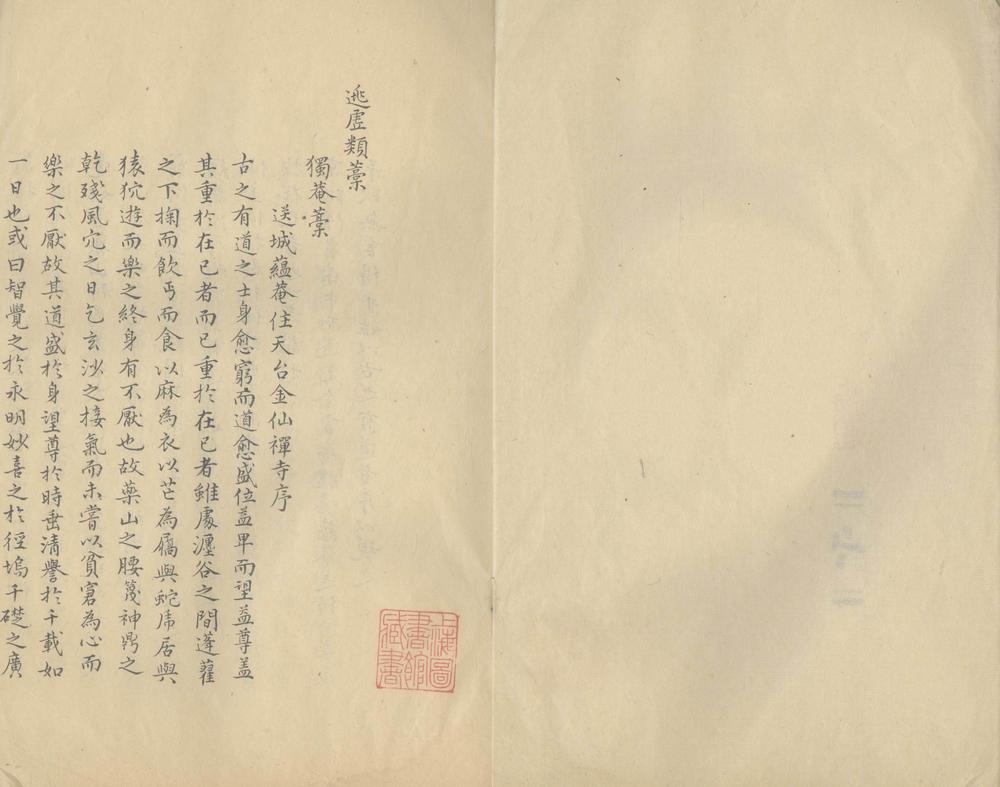 逃虛類藁
獨菴藁
送城蘊菴住天台金仙禪寺序
古之有道之士身愈窮而道愈盛位益卑而望益尊蓋
其重於在已者而已重於在已者雖處瀍谷之間蓬藋
之下掬而飲丐而食以麻為衣以芒為屩與蛇乕居與
猿狖遊而樂之終身有不厭也故藥山之腰篾神鼎之
乾殘風穴之日乞玄沙之接氣而未嘗以貧窘為心而
樂之不厭故其道盛於身望尊於時垂清譽於千載如
一日也或曰智覺之於永明妙喜之於徑塢千礎之廣
上海圖書館藏書